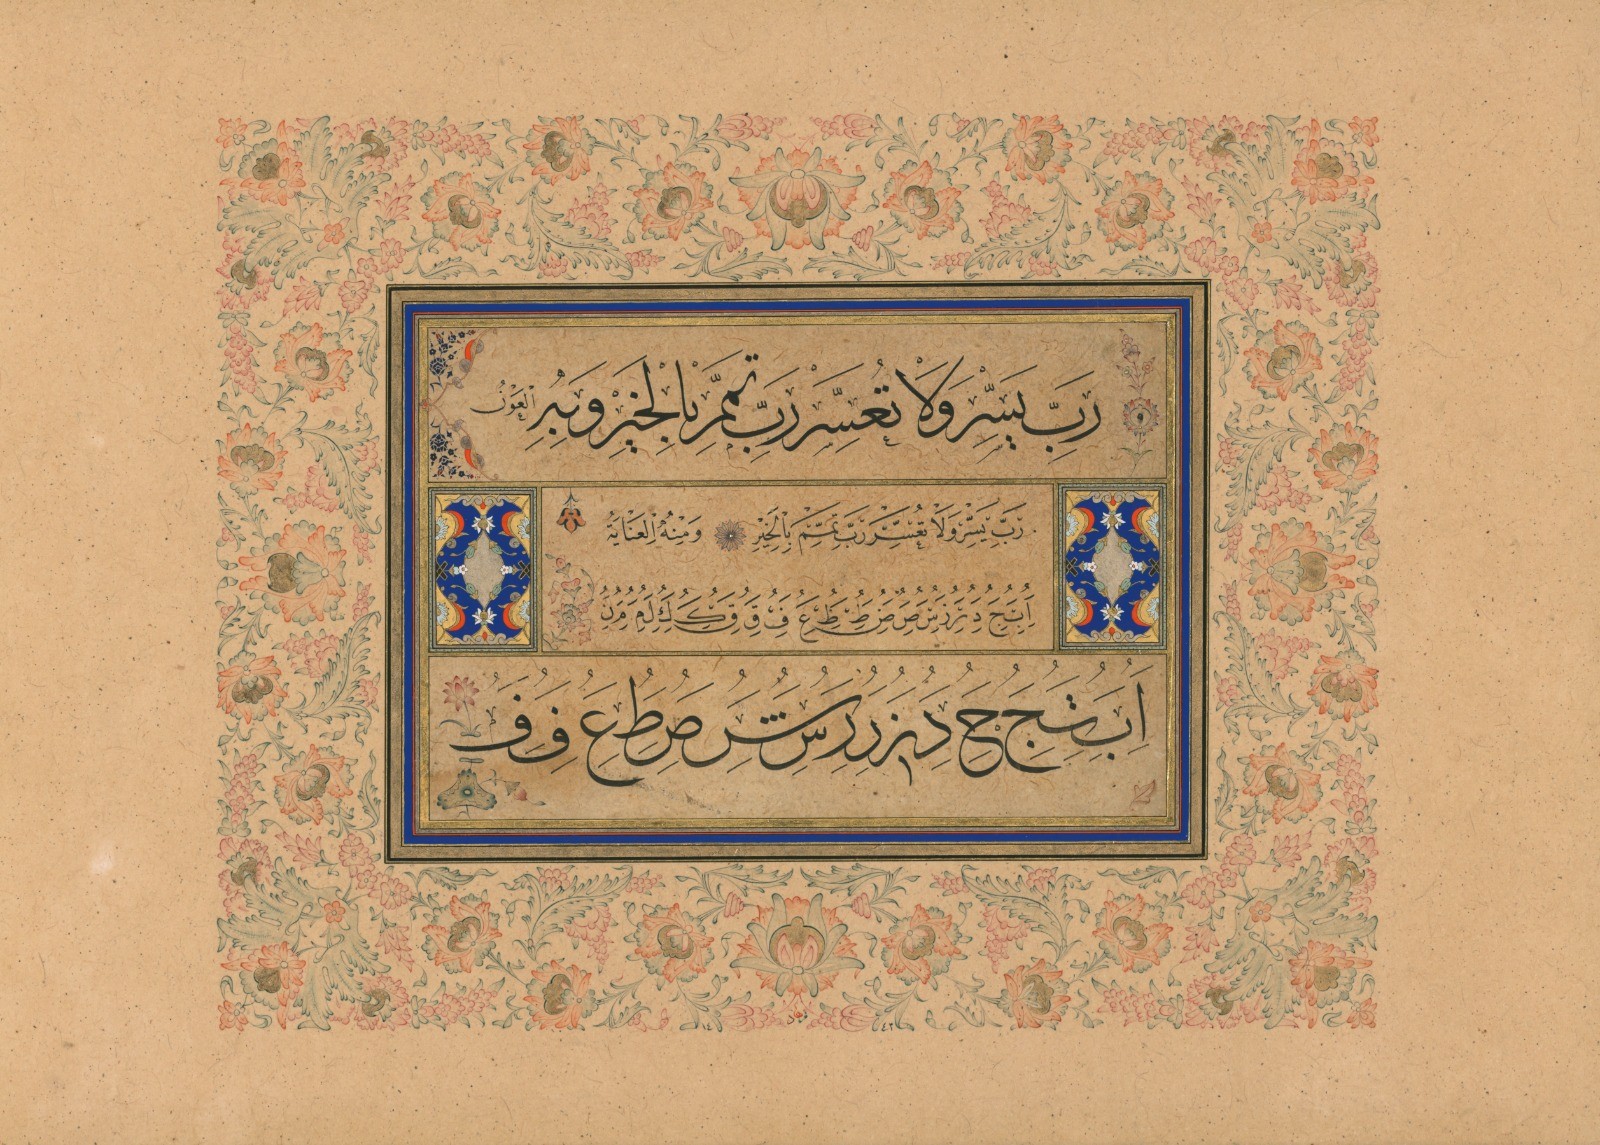 رَبِّ يَسِّرْ وَلَا تُعَسِّرْ رَبِّ تَمِّمْ بِالْخَيْرِ وَبِهِ الْعَوْنُ
رَبِّ يَسِّرْ وَلَا تُعَسِّرْ رَبِّ تَمِّمْ بِالْخَيْرِ وَمِنْهُ الْعِنَايَةُ
ا ب ج د ر ز س ص ض ط ع ف ق ق ك ك ل م م ن
ا ب ت ج ح د ر ز ر س ش ص ط ع ف ف